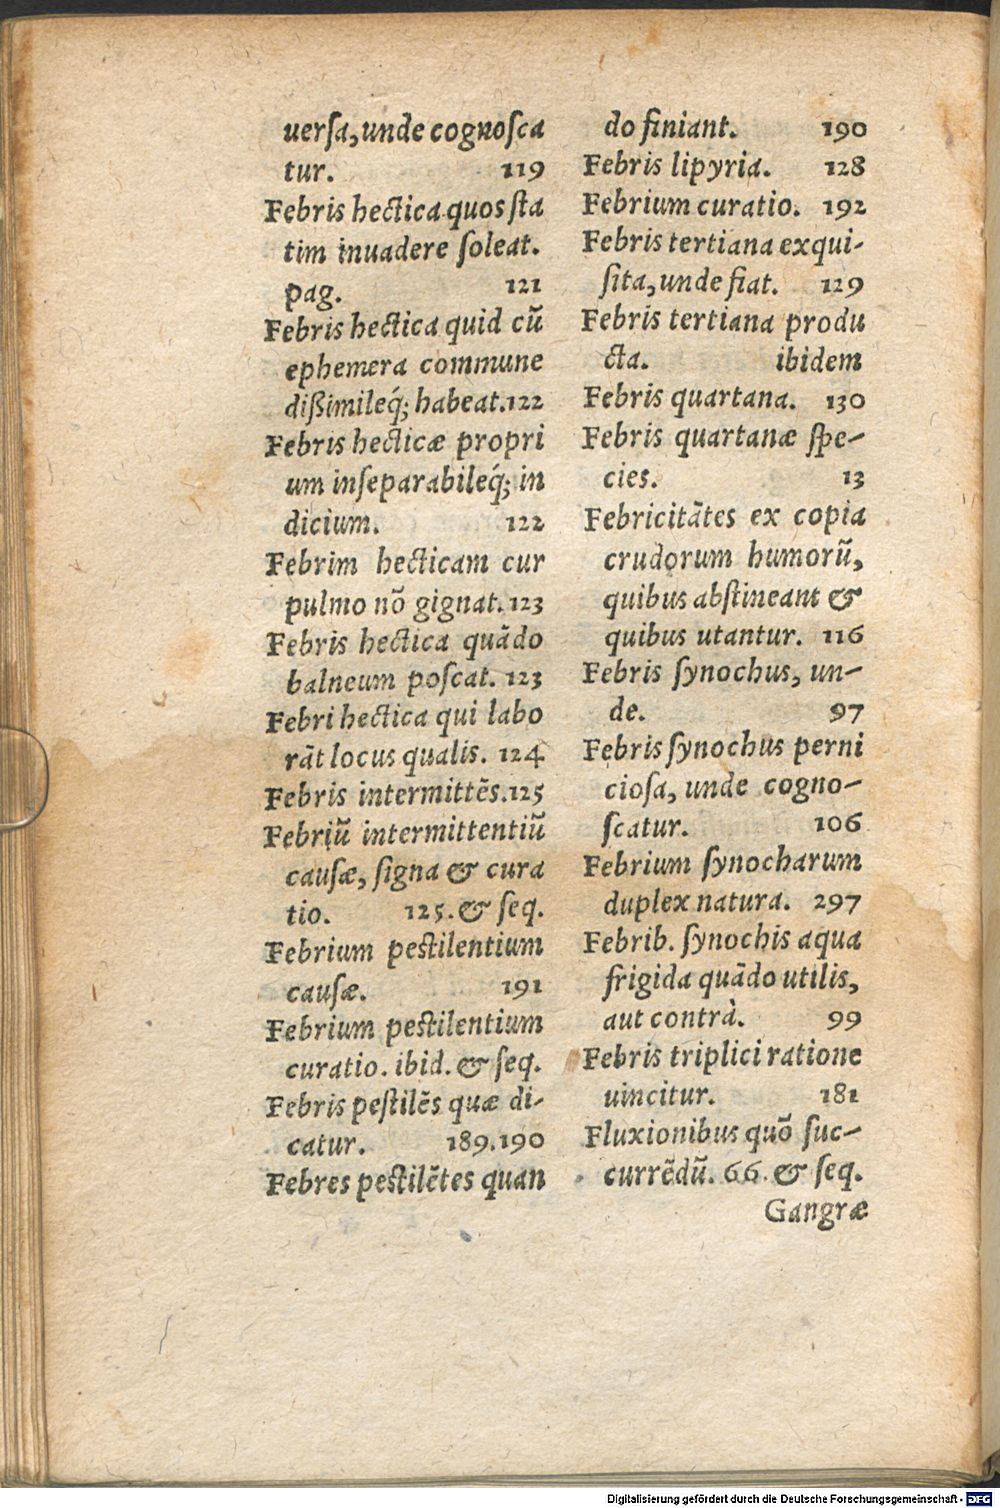 uerſa, unde cognoſca
tur. 119
Febris hectica quos ſta
tim inuadere ſoleat.
pag. 121
Febris hectica quid cũ
ephemera commune
dißimileq́; habeat. 122
Febris hecticæ propri
um inſeparabileq́; in
dicium. 122
Febrim hecticam cur
pulmo nõ gignat. 123
Febris hectica quãdo
balneum poſcat. 123
Febri hectica qui labo
rãt locus qualis. 124
Febris intermittẽs. 125
Febriũ intermittentiũ
cauſæ, ſigna & cura
tio. 125. & ſeq.
Febrium peſtilentium
cauſæ. 191
Febrium peſtilentium
curatio. ibid. & ſeq.
Febris peſtilẽs quæ di-
catur. 189.190
Febres peſtilẽtes quan
do finiant. 190
Febris lipyria. 128
Febrium curatio. 192
Febris tertiana exqui-
ſita, unde fiat. 129
Febris tertiana produ
cta. ibidem
Febris quartana. 130
Febris quartanæ ſpe-
cies. 13
Febricitãtes ex copia
crudorum humorũ,
quibus abſtineant &
quibus utantur. 116
Febris ſynochus, un-
de. 97
Febris ſynochus perni
cioſa, unde cogno-
ſcatur. 106
Febrium ſynocharum
duplex natura. 297
Febrib. ſynochis aqua
frigida quãdo utilis,
aut contrà. 99
Febris triplici ratione
uincitur. 181
Fluxionibus quõ ſuc-
currẽdũ. 66. & ſeq.
Gangræ
Digitalisierung gefördert durch die Deutsche Forschungsgemeinschaft - DFG